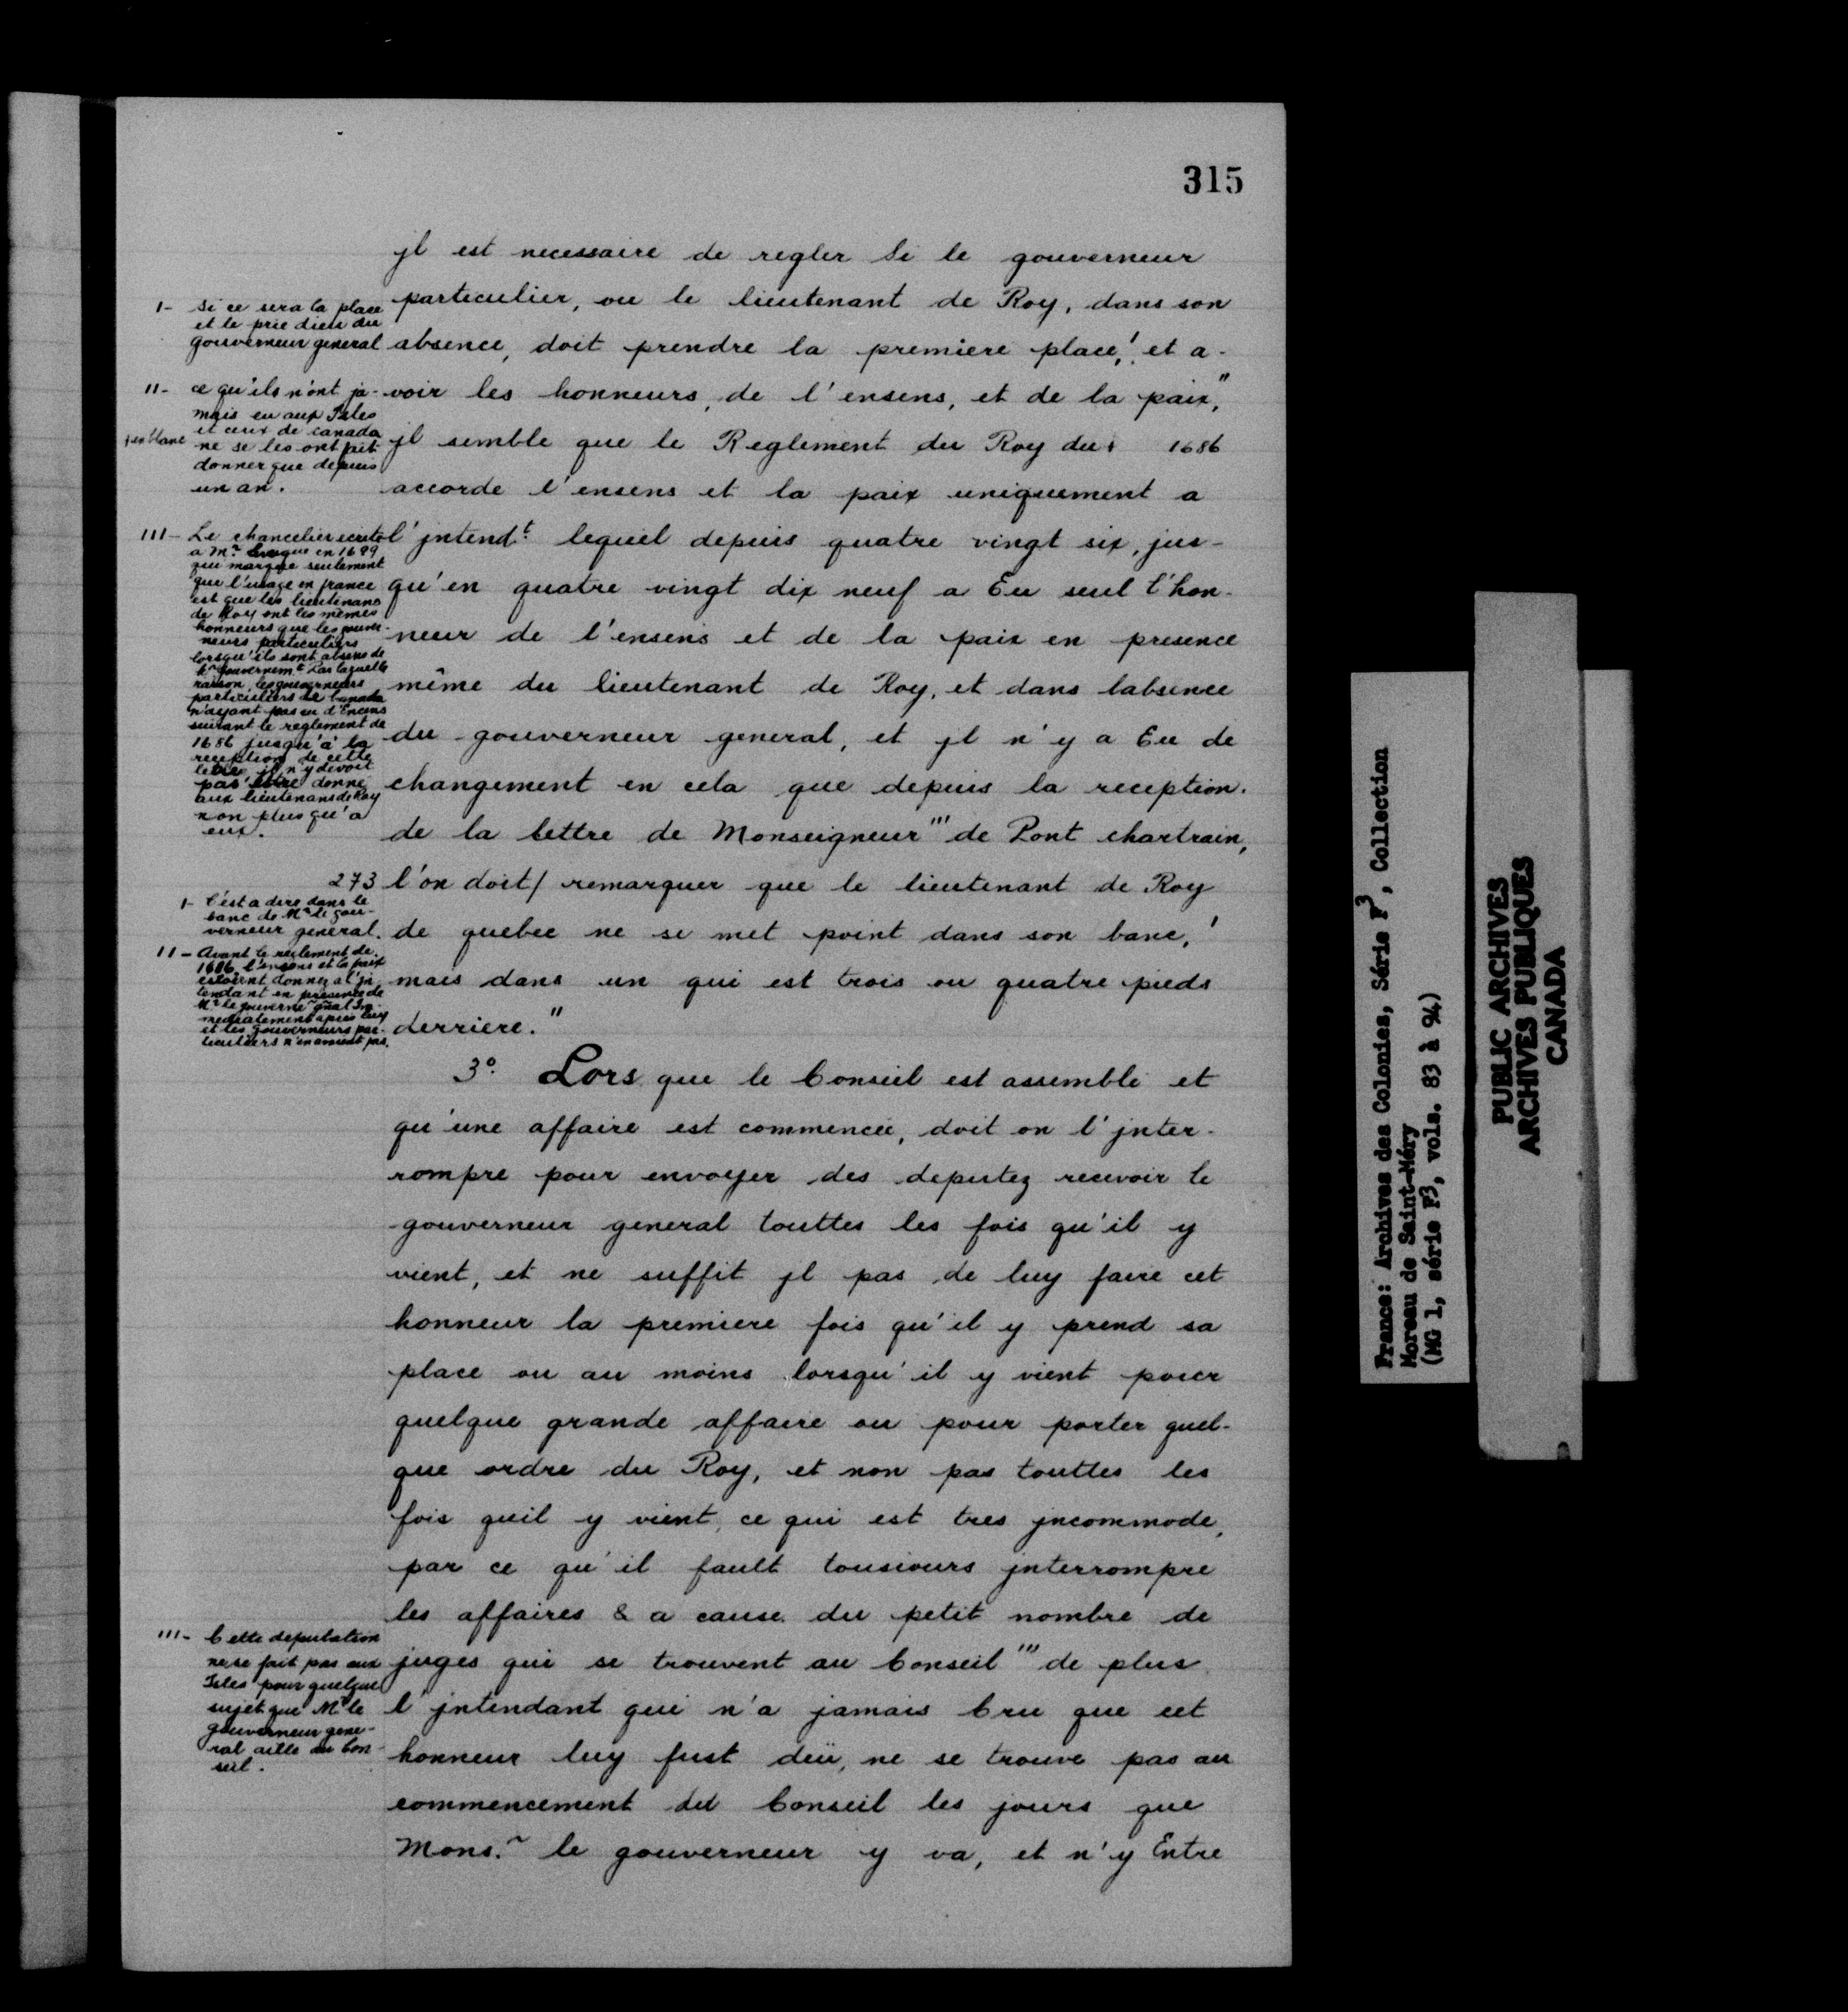 315
jl est necessaire de regler Si le gouverneur
particulier, ou le lieutenant de Roy, dans son
absence, doit prendre la premiere place,' et a-
voir les honneurs, de l'ensens, et de la paix,"
jl semble que le Reglement du Roy du + 1686
accorde l'ensens et la paix uniquement a
l'jntend.t lequel depuis quatre vingt six, jus-
qu'en quatre vingt dix neuf a Eu seul l'hon-
neur de l'ensens et de la paix en presence
même du lieutenant de Roy, et dans labsence
du gouverneur general, et jl n'y a Eu de
changement en cela que depuis la reception.
de la lettre de Monseigneur''' de Pont chartrain,
273 l'on doit/ remarquer que le lieutenant de Roy
de quebec ne se met point dans son banc,'
mais dans un qui est trois ou quatre pieds
derriere."
3.º Lors que le Conseil est assemblé et
qu'une affaire est commencée, doit on l'jnter-
rompre pour envoyer des deputez recevoir le
gouverneur general touttes les fois qu'il y
vient, et ne suffit jl pas de luy faire cet
honneur la premiere fois qu'il y prend sa
place ou au moins lorsqu'il y vient pour
quelque grande affaire ou pour porter quel-
que ordre du Roy, et non pas touttes les
fois quil y vient, ce qui est tres jncommode,
par ce qu'il fault tousiours jnterrompre
les affaires & a cause du petit nombre de
juges qui se trouvent au Conseil''' de plus
l'jntendant qui n'a jamais Cru que cet
honneur luy fust deü, ne se trouve pas au
commencement du Conseil les jours que
Mons.r le gouverneur y va, et n'y Entre
I- Si ce sera la place
et le prie dieu du
gouverneur general
II- ce qu'ils n'ont ja-
mais eu aux Isles
et ceux de canada
ne se les ont fait
donner que depuis
un an.
+ en blanc
III- Le chancelier ecrite
a M.r en 1699
qui marque seulement
que l'usage en france
est que les lieutenans
de Roy ont les mêmes
honneurs que les gouver-
neurs particuliers
lorsqu'ils sont absens de
gouvernem.t Par laquelle
raison, les gouverneurs
particuliers de Canada
n'ayant pas eu d'Encens
suivant le reglement de
1686 jusqu'à la
reception de cette
lettre jl n'y devoit
pas être donné
aux lieutenans de Roy
non plus qu'a
eux.
I- C'est a dire dans le
banc de M.r le gou-
verneur general.
II- Avant le reglement de
1686 l'ensens et la paix
estoient donnez a l'jn
tendant en presence de
M.r le gouverne.r gñal Im-
mediatement apres luy
et les Gouverneurs par-
ticuliers n'en avoient pas.
III- Cette deputation
ne se fait pas aux
Isles pour quelque
sujet que M.r le
gouverneur gene-
ral aille au Con-
seil.
France: Archives des Colonies, Série F3, Collection
Moreau de Saint-Méry
(MG 1, série F3, vols. 83 à 94)
PUBLIC ARCHIVES
ARCHIVES PUBLIQUES
CANADA